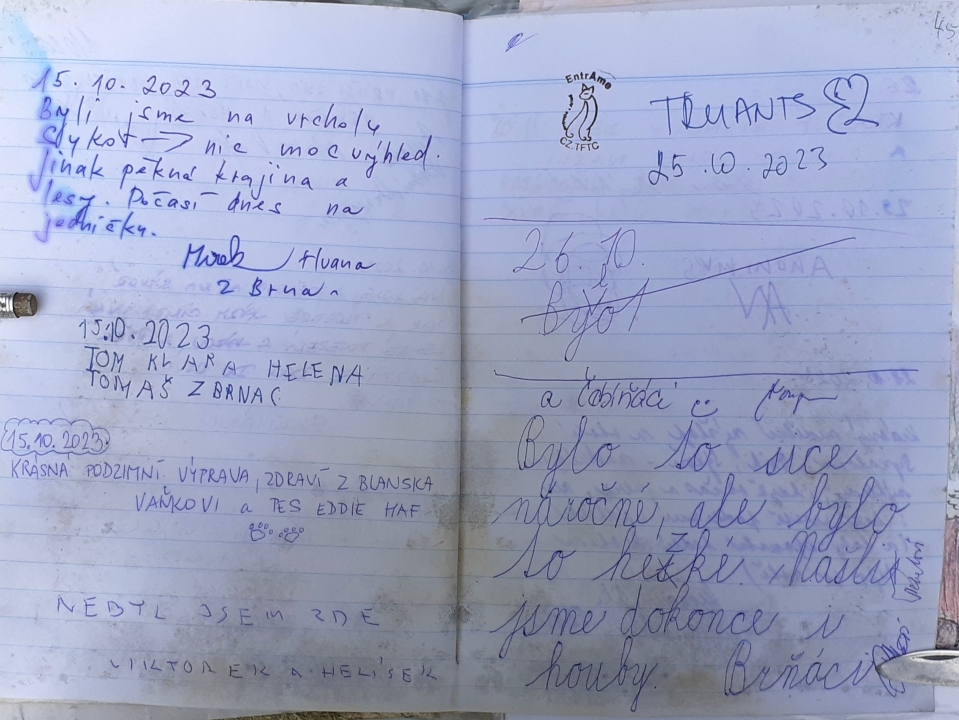 15.10.2023
Byli jsme na vrcholu
Skykot → nic moc výhled.
jinak pěkná krajina a
lesy. Počasí dnes na
jedničku.
Mirek
z Brna
15.10.2023
TOM KLARA HELENA
TOMAŠ Z BRNA
15.10.2023
KRÁSNÁ PODZIMNÍ VÝPRAVA, ZDRAVÍ Z BLANSKA
VAŇKOVI a PES EDDIE HAF
NEBYL JSEM ZDE
VIKTOREK A HELÍSEK
45
EntrAme
CZ.TFTC
TRUANTS
25.10.2023
26.10.
Bylo
a Čoblňáci
Bylo to sice
náročné, ale bylo
to hezké. Našli
jsme dokonce i
houby. Brňáci